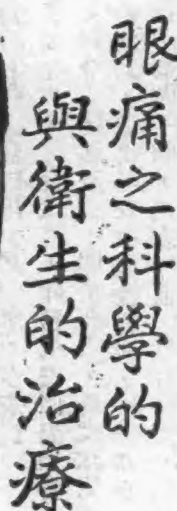 眼痛之科學的
與衛生的治療